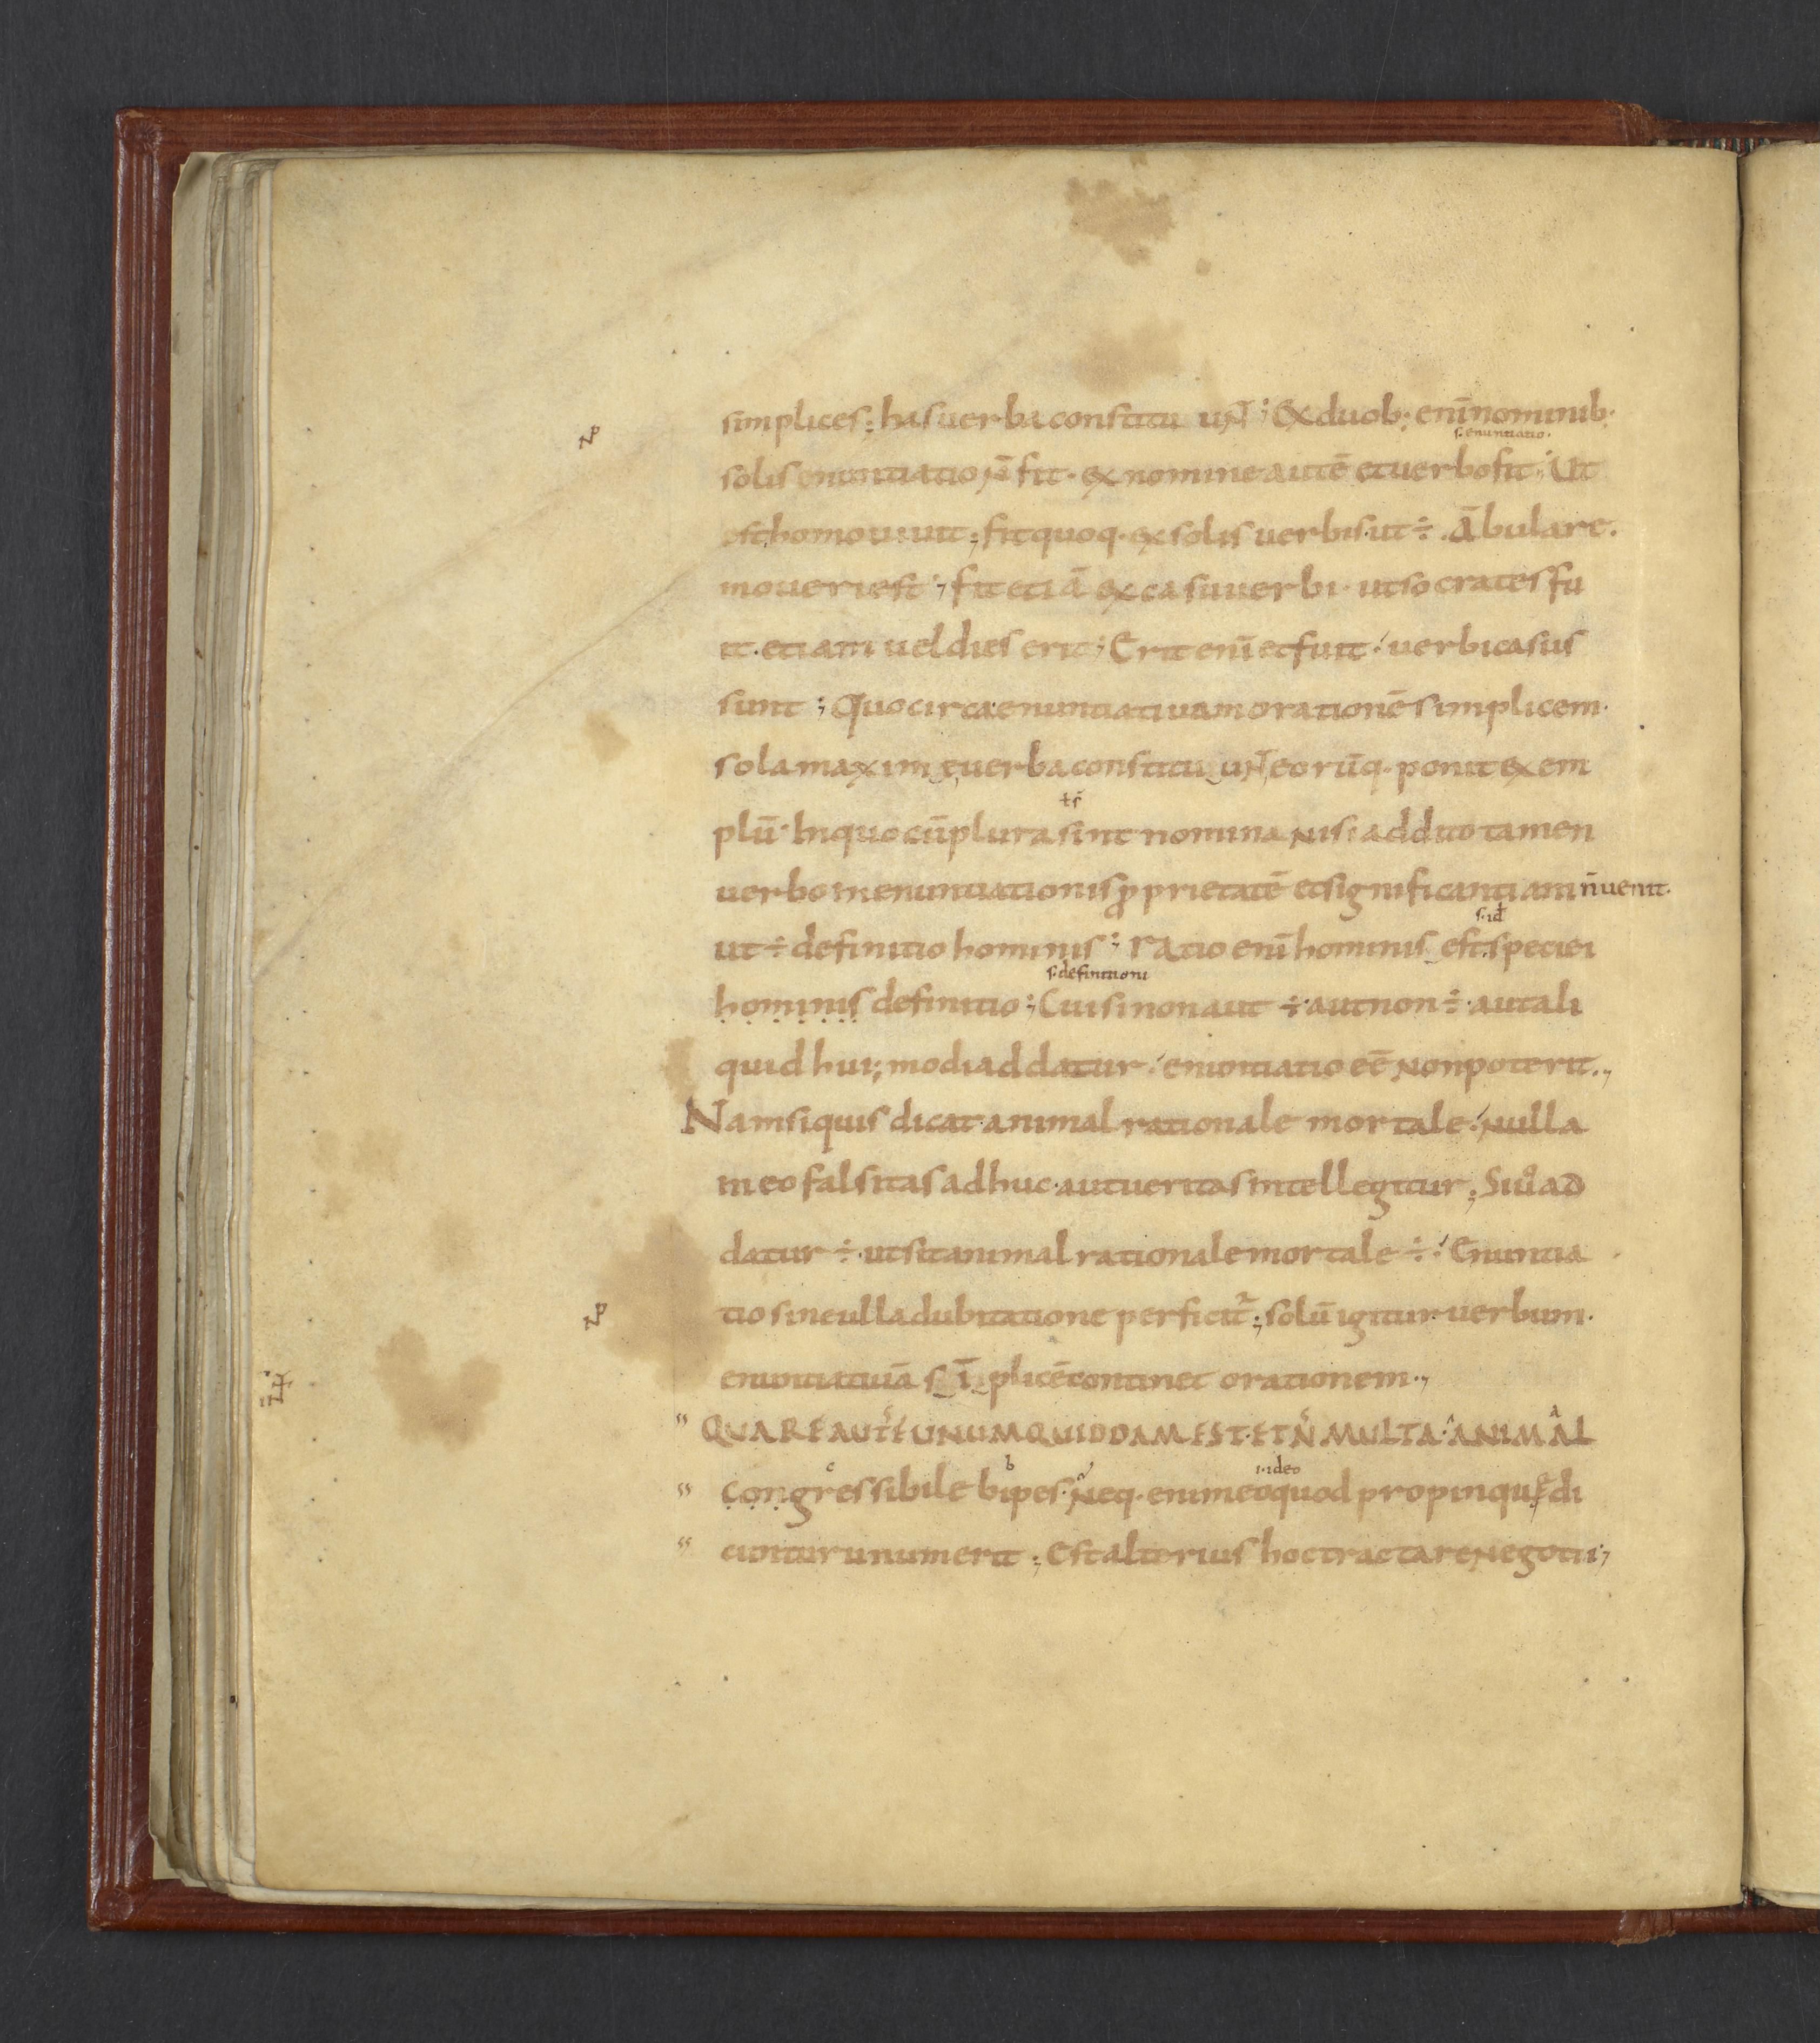 simplices; has uerba constituunt; Ex duob; enī nominib;
s. enuntiatio.
solis enuntiatio ñ fit. ex nomine autē et uerbo fit; Ut
est homo uiuit; fit quoq. ex solis uerbis. ut ÷. Ābulare.
moueri est; fit etiā ex casu uerbi. ut socrates fu
it. etiam uel dies erit; Erit enī et fuit. uerbi casus
sunt; Quocirca enuntiatiuam orationē simplicem.
sola maximę uerba constituunt eorūq. ponit exem
plū. In quo cū plura sint nomina nisi addito tamen
uerbo in enuntiationis ꝓprietatē et significantiam ñ uenit.
s. id
ut ÷ definitio hominis; ratio enī hominis est speciei
s. definitioni
hominis definitio; Cui si non aut ÷. aut non ÷. aut ali
quid hui; modi addatur. enuntiatio eē non poterit.,
Nam si quis dicat animal rationale mortale. nulla
in eo falsitas adhuc. aut ueritas intellegitur; Si uͦ ad
datur ÷. ut sit animal rationale mortale ÷. Enuntia
tio sine ulla dubitatione perficit̃; solū igitur uerbum.
enuntiatiuā sīplicē continet orationem.,
QUARE AUTĒ UNUM QUIDDAM EST. ET Ñ MULTA. ANIMAL
i. ideo
congressibile bipes. Neq. enim eo quod propinquę di
cuntur unum erit; Est alterius hoc tractare negotii;